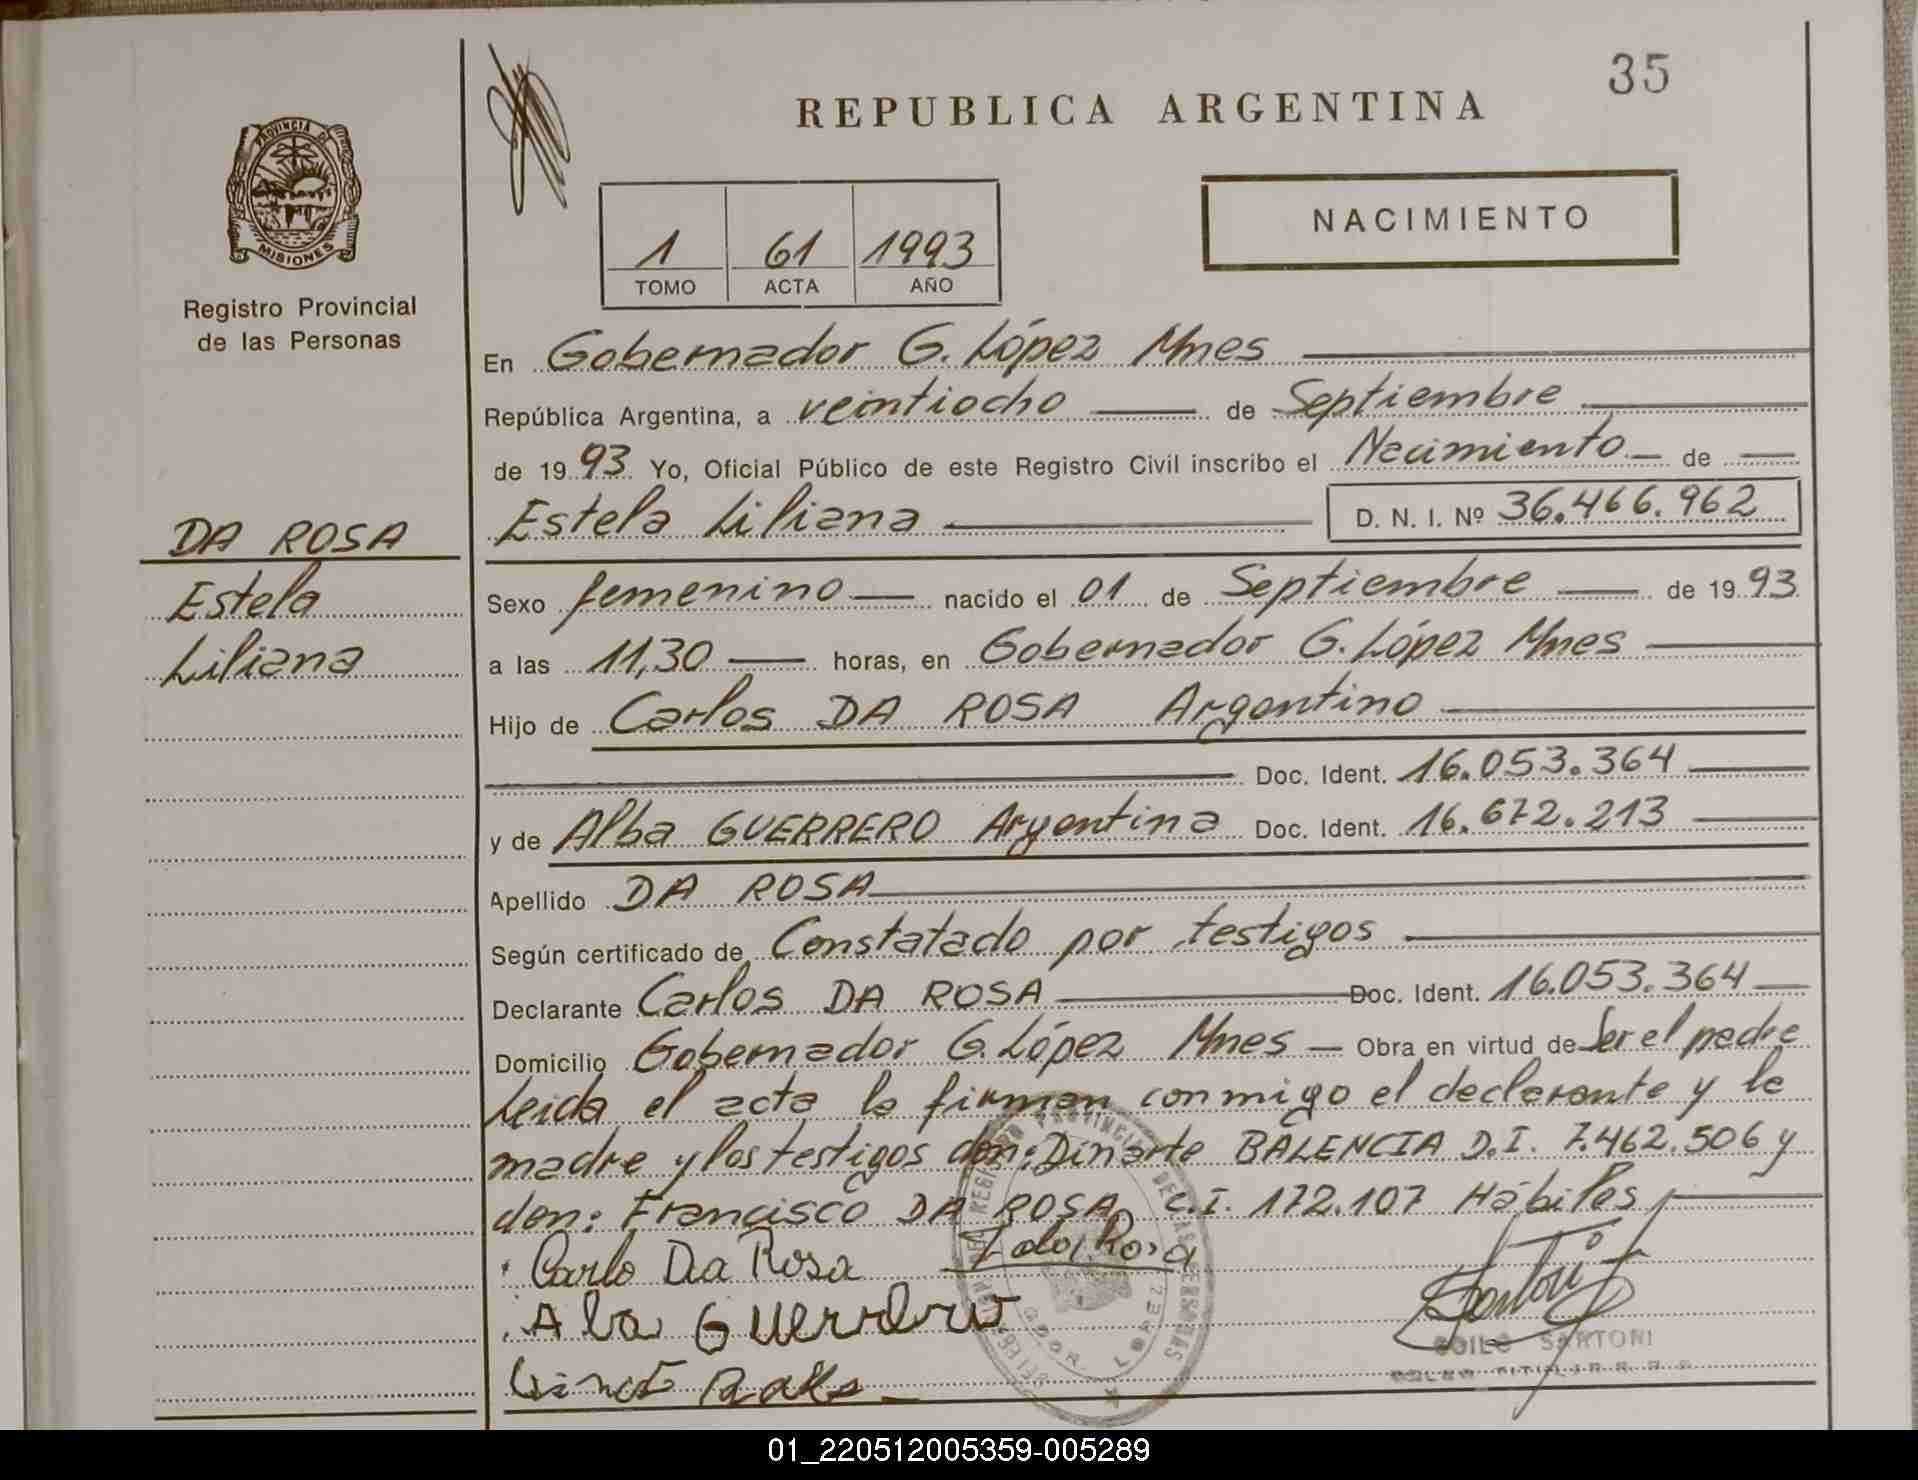 35
REPUBLICA ARGENTINA
PROVINCIA DE
MISIONES
Registro Provincial
de las Personas
NACIMIENTO
1 61 1993
TOMO ACTA AÑO
En Gobernador G. López Mnes
República Argentina, a veintiocho de Septiembre
de 1993 Yo, Oficial Público de este Registro Civil inscribo el Nacimiento de
Estela Liliana D. N. I. Nº 36.466.962
DA ROSA
Estela
Liliana
Sexo femenino nacido el 01 de Septiembre de 1993
a las 11,30 horas, en Gobernador G. López Mnes
Hijo de Carlos DA ROSA Argentino
Doc. Ident. 16.053.364
y de Alba GUERRERO Argentina Doc. Ident. 16.672.213
Apellido DA ROSA
Según certificado de Constatado por testigos
Declarante Carlos DA ROSA Doc. Ident. 16.053.364
Domicilio Gobernador G. López Mnes Obra en virtud de Ser el padre
Leida el acta la firman conmigo el declarante y la
madre y los testigos don: Dinarte BALENCIA D.I. 7.462.506 y
don: Francisco DA ROSA C.I. 172.107 Hábiles
Carlo Da Rosa
Ala Guerrero
SARTORI
01_220512005359-005289